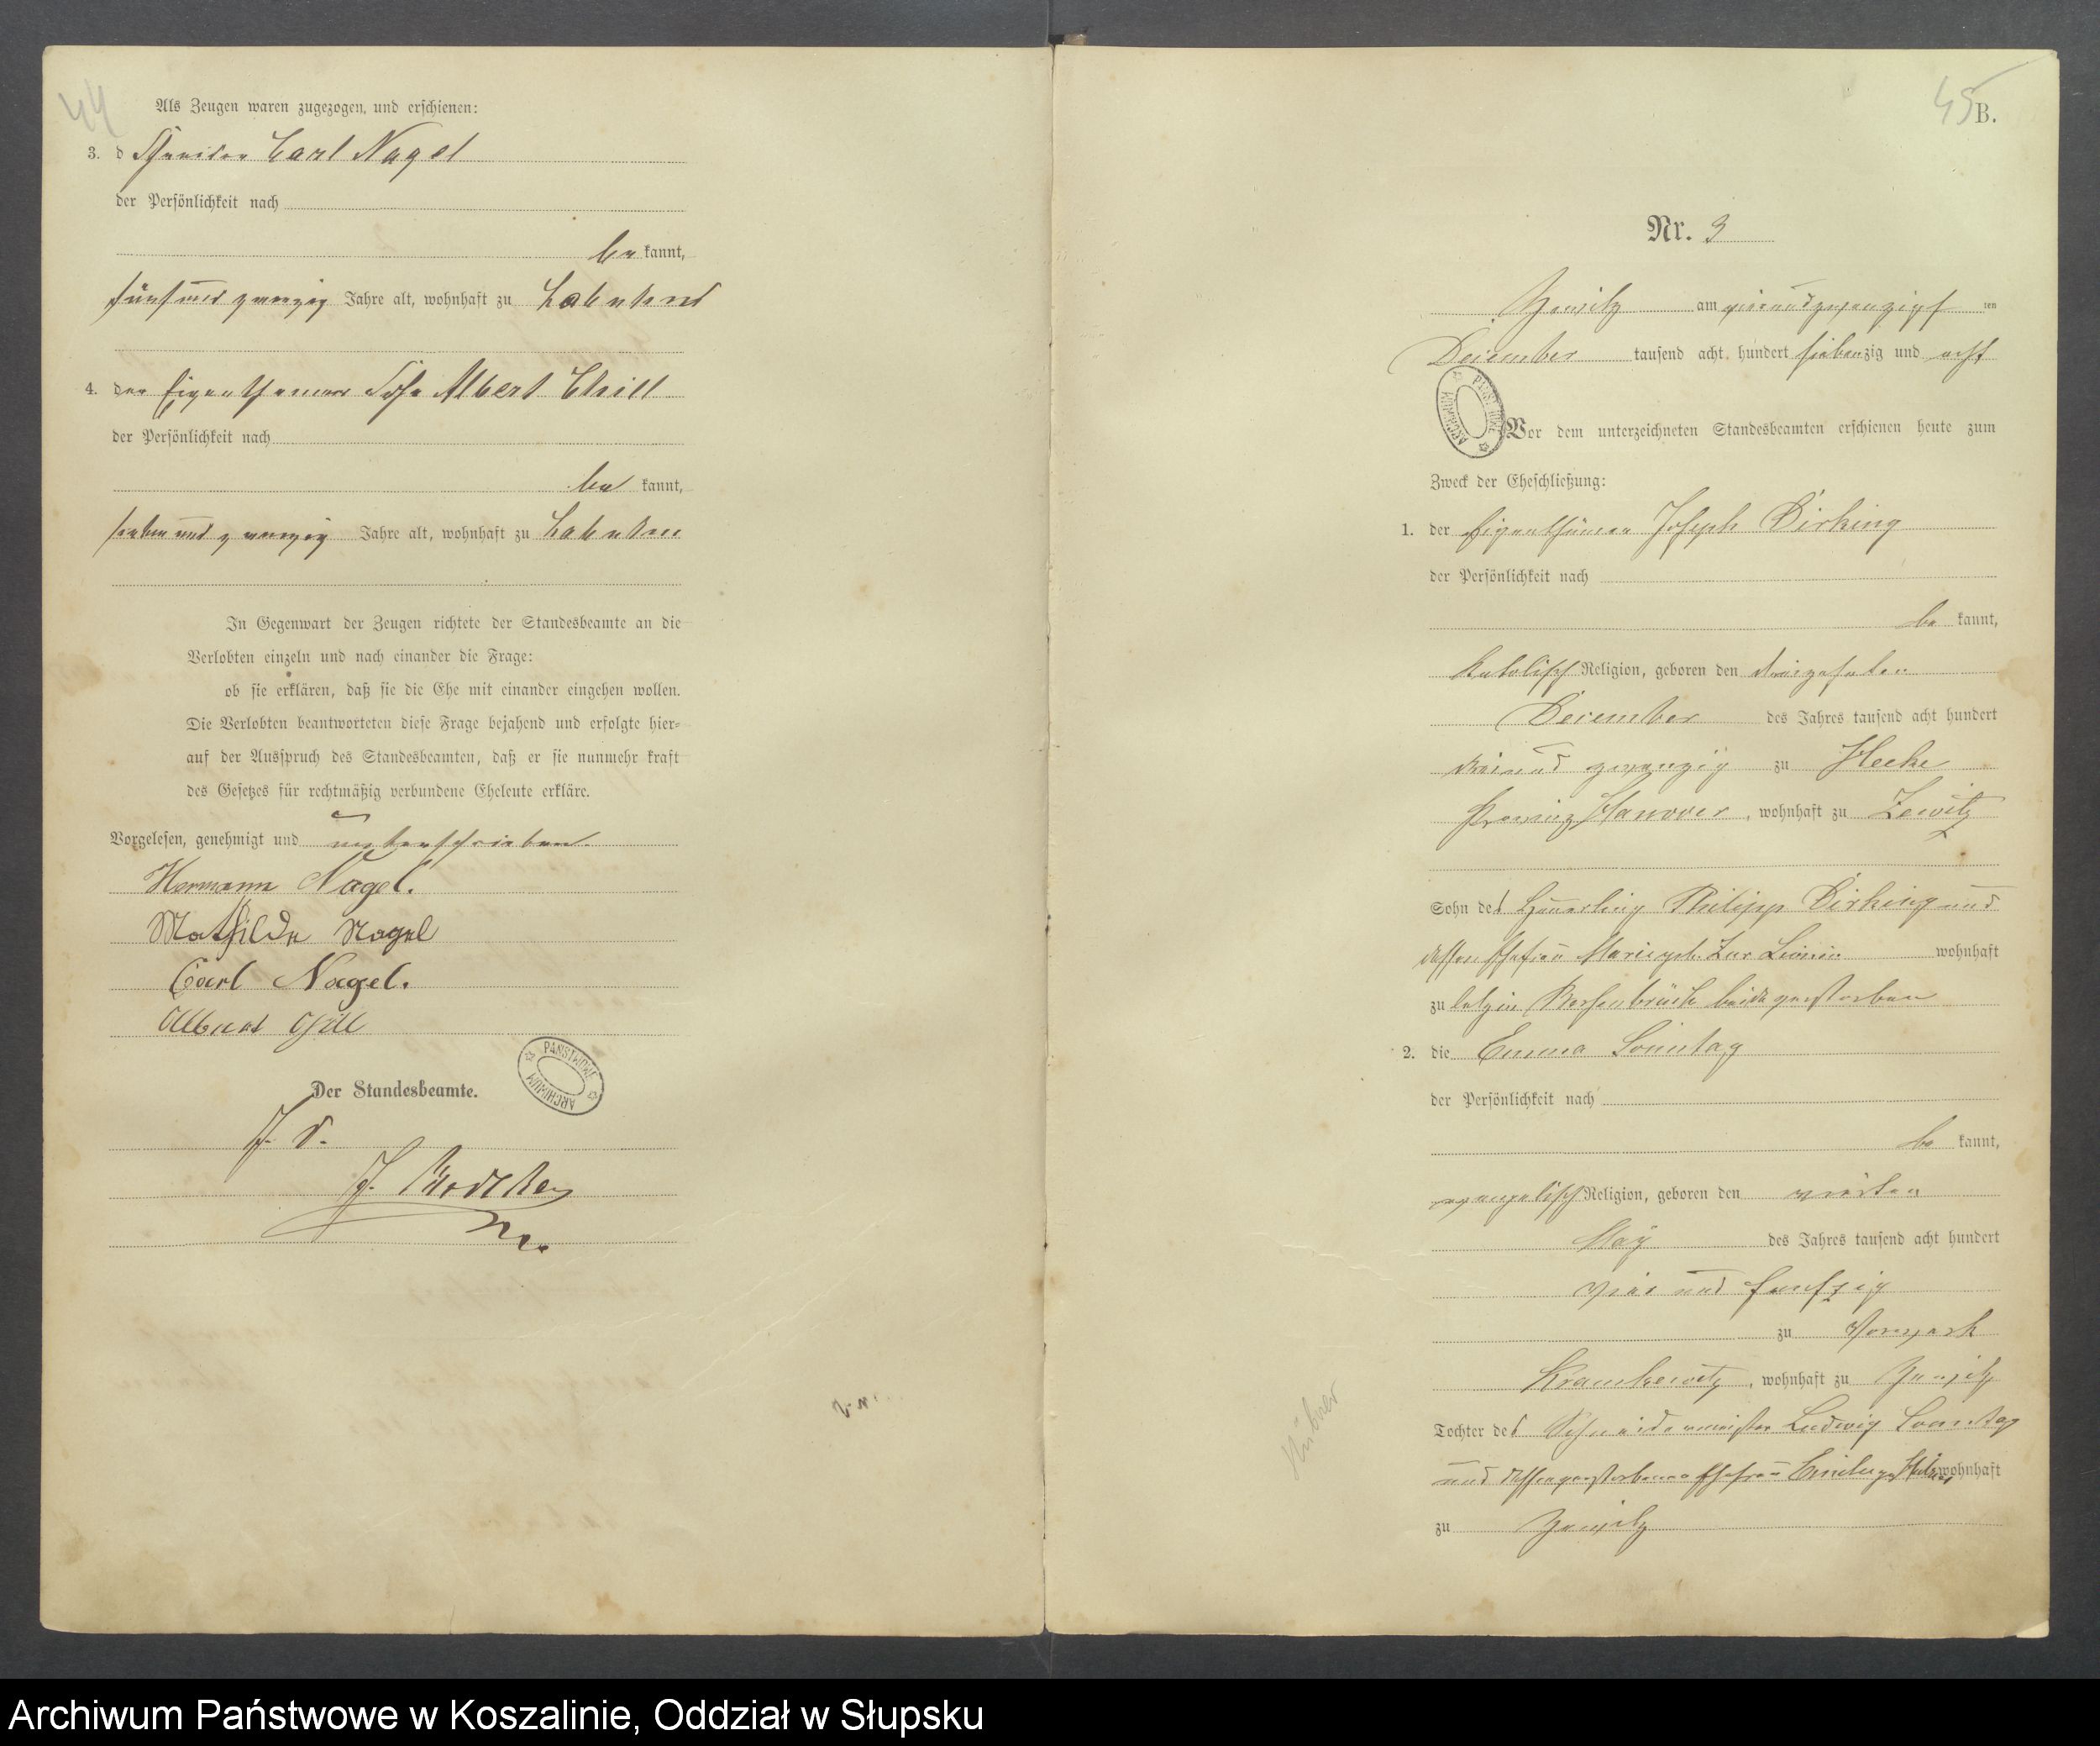 44
Als Zeugen waren zugezogen und erschienen:
3. d Schneider Carl Nagel
der Persönlichkeit nach
be kannt,
fünf und zwanzig Jahre alt, wohnhaft zu Labehn
4. der Eigenthümer Sohn Albert
der Persönlichkeit nach
be kannt,
sieben und zwanzig Jahre alt, wohnhaft zu Labehn
In Gegenwart der Zeugen richtete der Standesbeamte an die
Verlobten einzeln und nach einander die Frage:
ob sie erklären, daß sie die Ehe mit einander eingehen wollen.
Die Verlobten beantworteten diese Frage bejahend und erfolgte hier-
auf der Ausspruch des Standesbeamten, daß er sie nunmehr kraft
des Gesetzes für rechtmäßig verbundene Eheleute erkläre.
Vorgelesen, genehmigt und unterschrieben.
Hermann Nagel.
Mathilde Nagel
Carl Nagel.
Albert
Der Standesbeamte.
PAŃSTWOWE ARCHIWUM
J.
45
B.
Nr. 3
Zewitz am vierundzwanzigsten
December tausend acht hundert siebenzig und acht
PAŃSTWOWE ARCHIWUM
Vor dem unterzeichneten Standesbeamten erschienen heute zum
Zweck der Eheschließung:
1. der Eigenthümer Joseph Dirking
der Persönlichkeit nach
be kannt,
katolisch Religion, geboren den dreizehnten
December des Jahres tausend acht hundert
drei und zwanzig zu Heeke
Provinz Hanover, wohnhaft zu Zewitz
Sohn des Heuerling Philipp Dirking und
dessen Ehefrau Marie geb. Zur wohnhaft
zu letzt in Bersenbrück beide verstorben
2. die Emma Sonntag
der Persönlichkeit nach
be kannt,
evangelisch Religion, geboren den vierten
May des Jahres tausend acht hundert
vier und funfzig
zu Vorwerk
Krampkewitz, wohnhaft zu Zewitz
Tochter des Schneidermeister Ludwig Sonntag
und dessen verstorbenen Ehefrau wohnhaft
zu Zewitz
Archiwum Państwowe w Koszalinie, Oddział w Słupsku